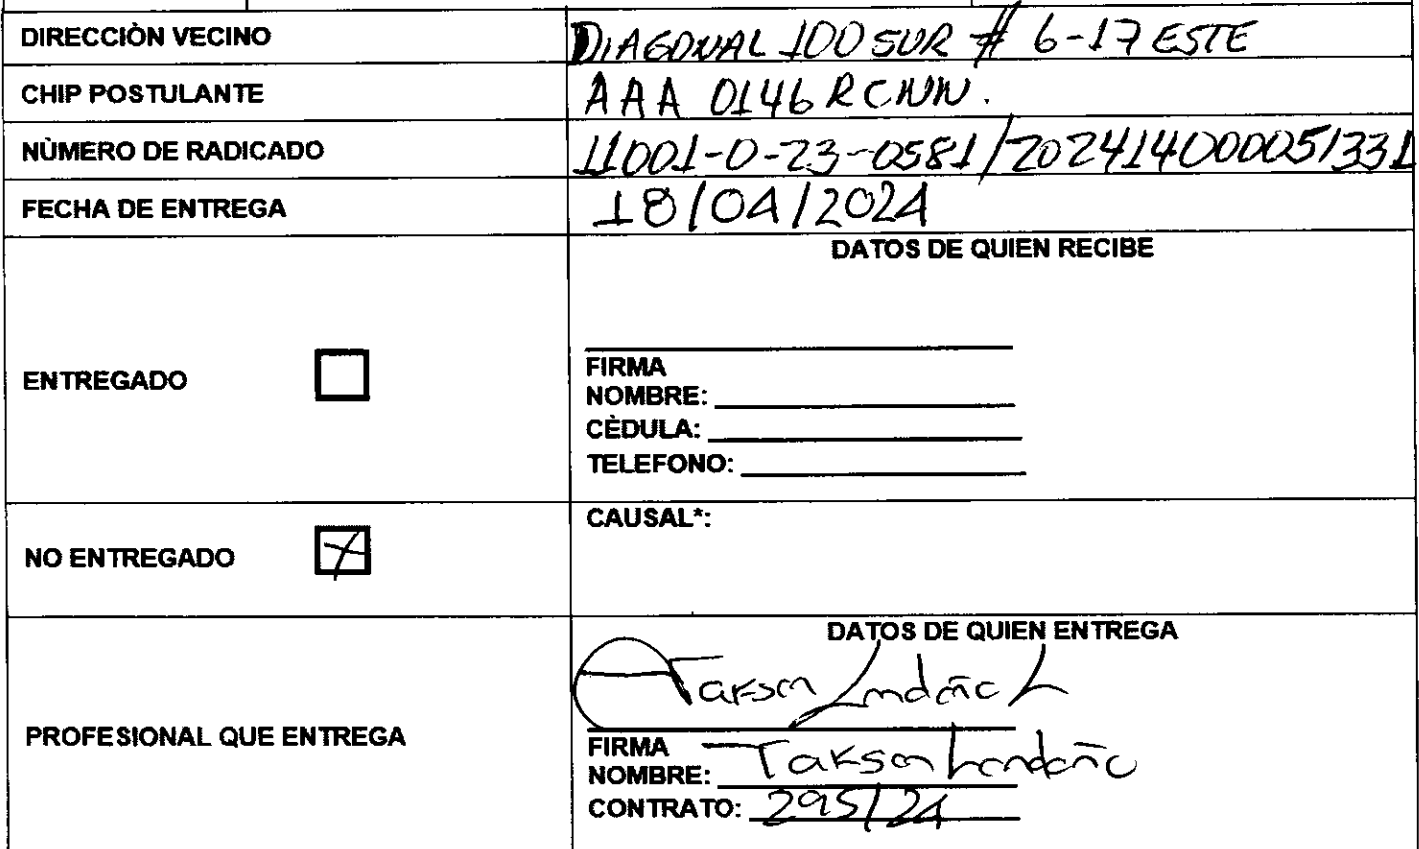 DIRECCIÒN VECINO DIAGONAL 100 SUR # 6-17 ESTE
CHIP POSTULANTE AAA 0146 RCNN.
NÙMERO DE RADICADO 11001-0-23-0581/202414000051331
FECHA DE ENTREGA 18/04/2024
DATOS DE QUIEN RECIBE
ENTREGADO
FIRMA
NOMBRE:
CÈDULA:
TELEFONO:
NO ENTREGADO
CAUSAL*:
DATOS DE QUIEN ENTREGA
PROFESIONAL QUE ENTREGA
FIRMA
NOMBRE: Jakson Londoño
CONTRATO: 295/24